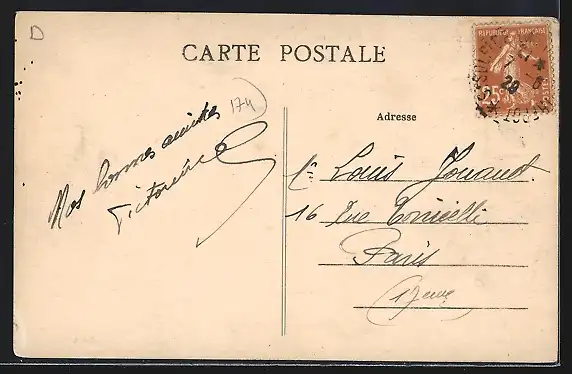 D
CARTE POSTALE
REPUBLIQUE FRANÇAISE
25c
7 - 8
29
174
Adresse
Nos bonnes amitiés
Victorine
Louis Jouanot
16 Rue Torricelli
Paris
(17eme)